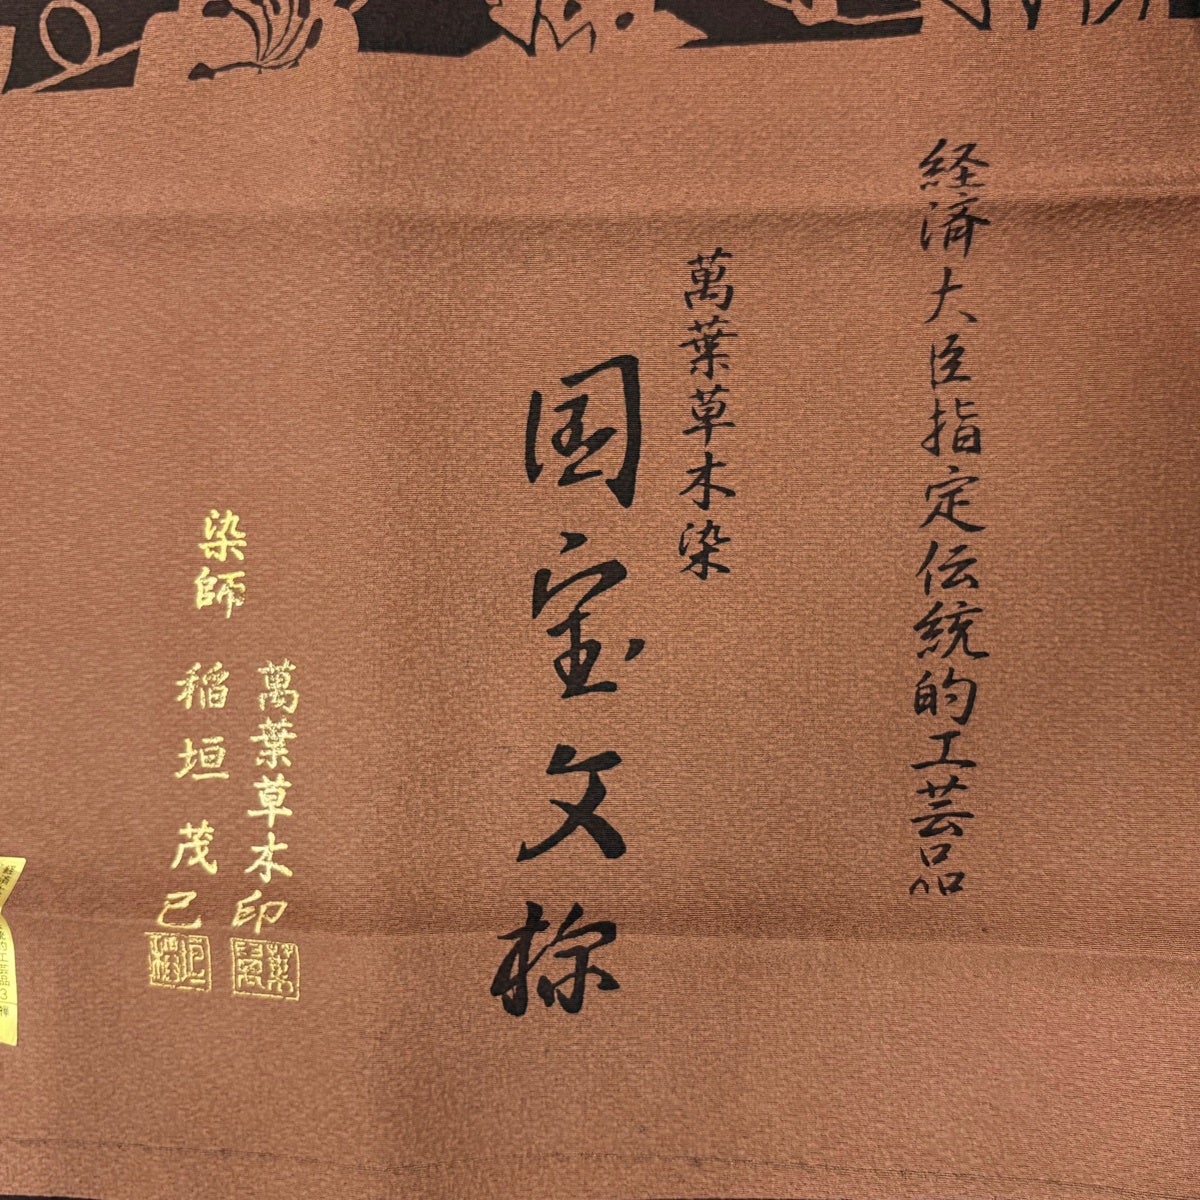 経済大臣指定伝統的工芸品
萬葉草木染
国宝文様
萬葉草木印
染師 稲垣茂己